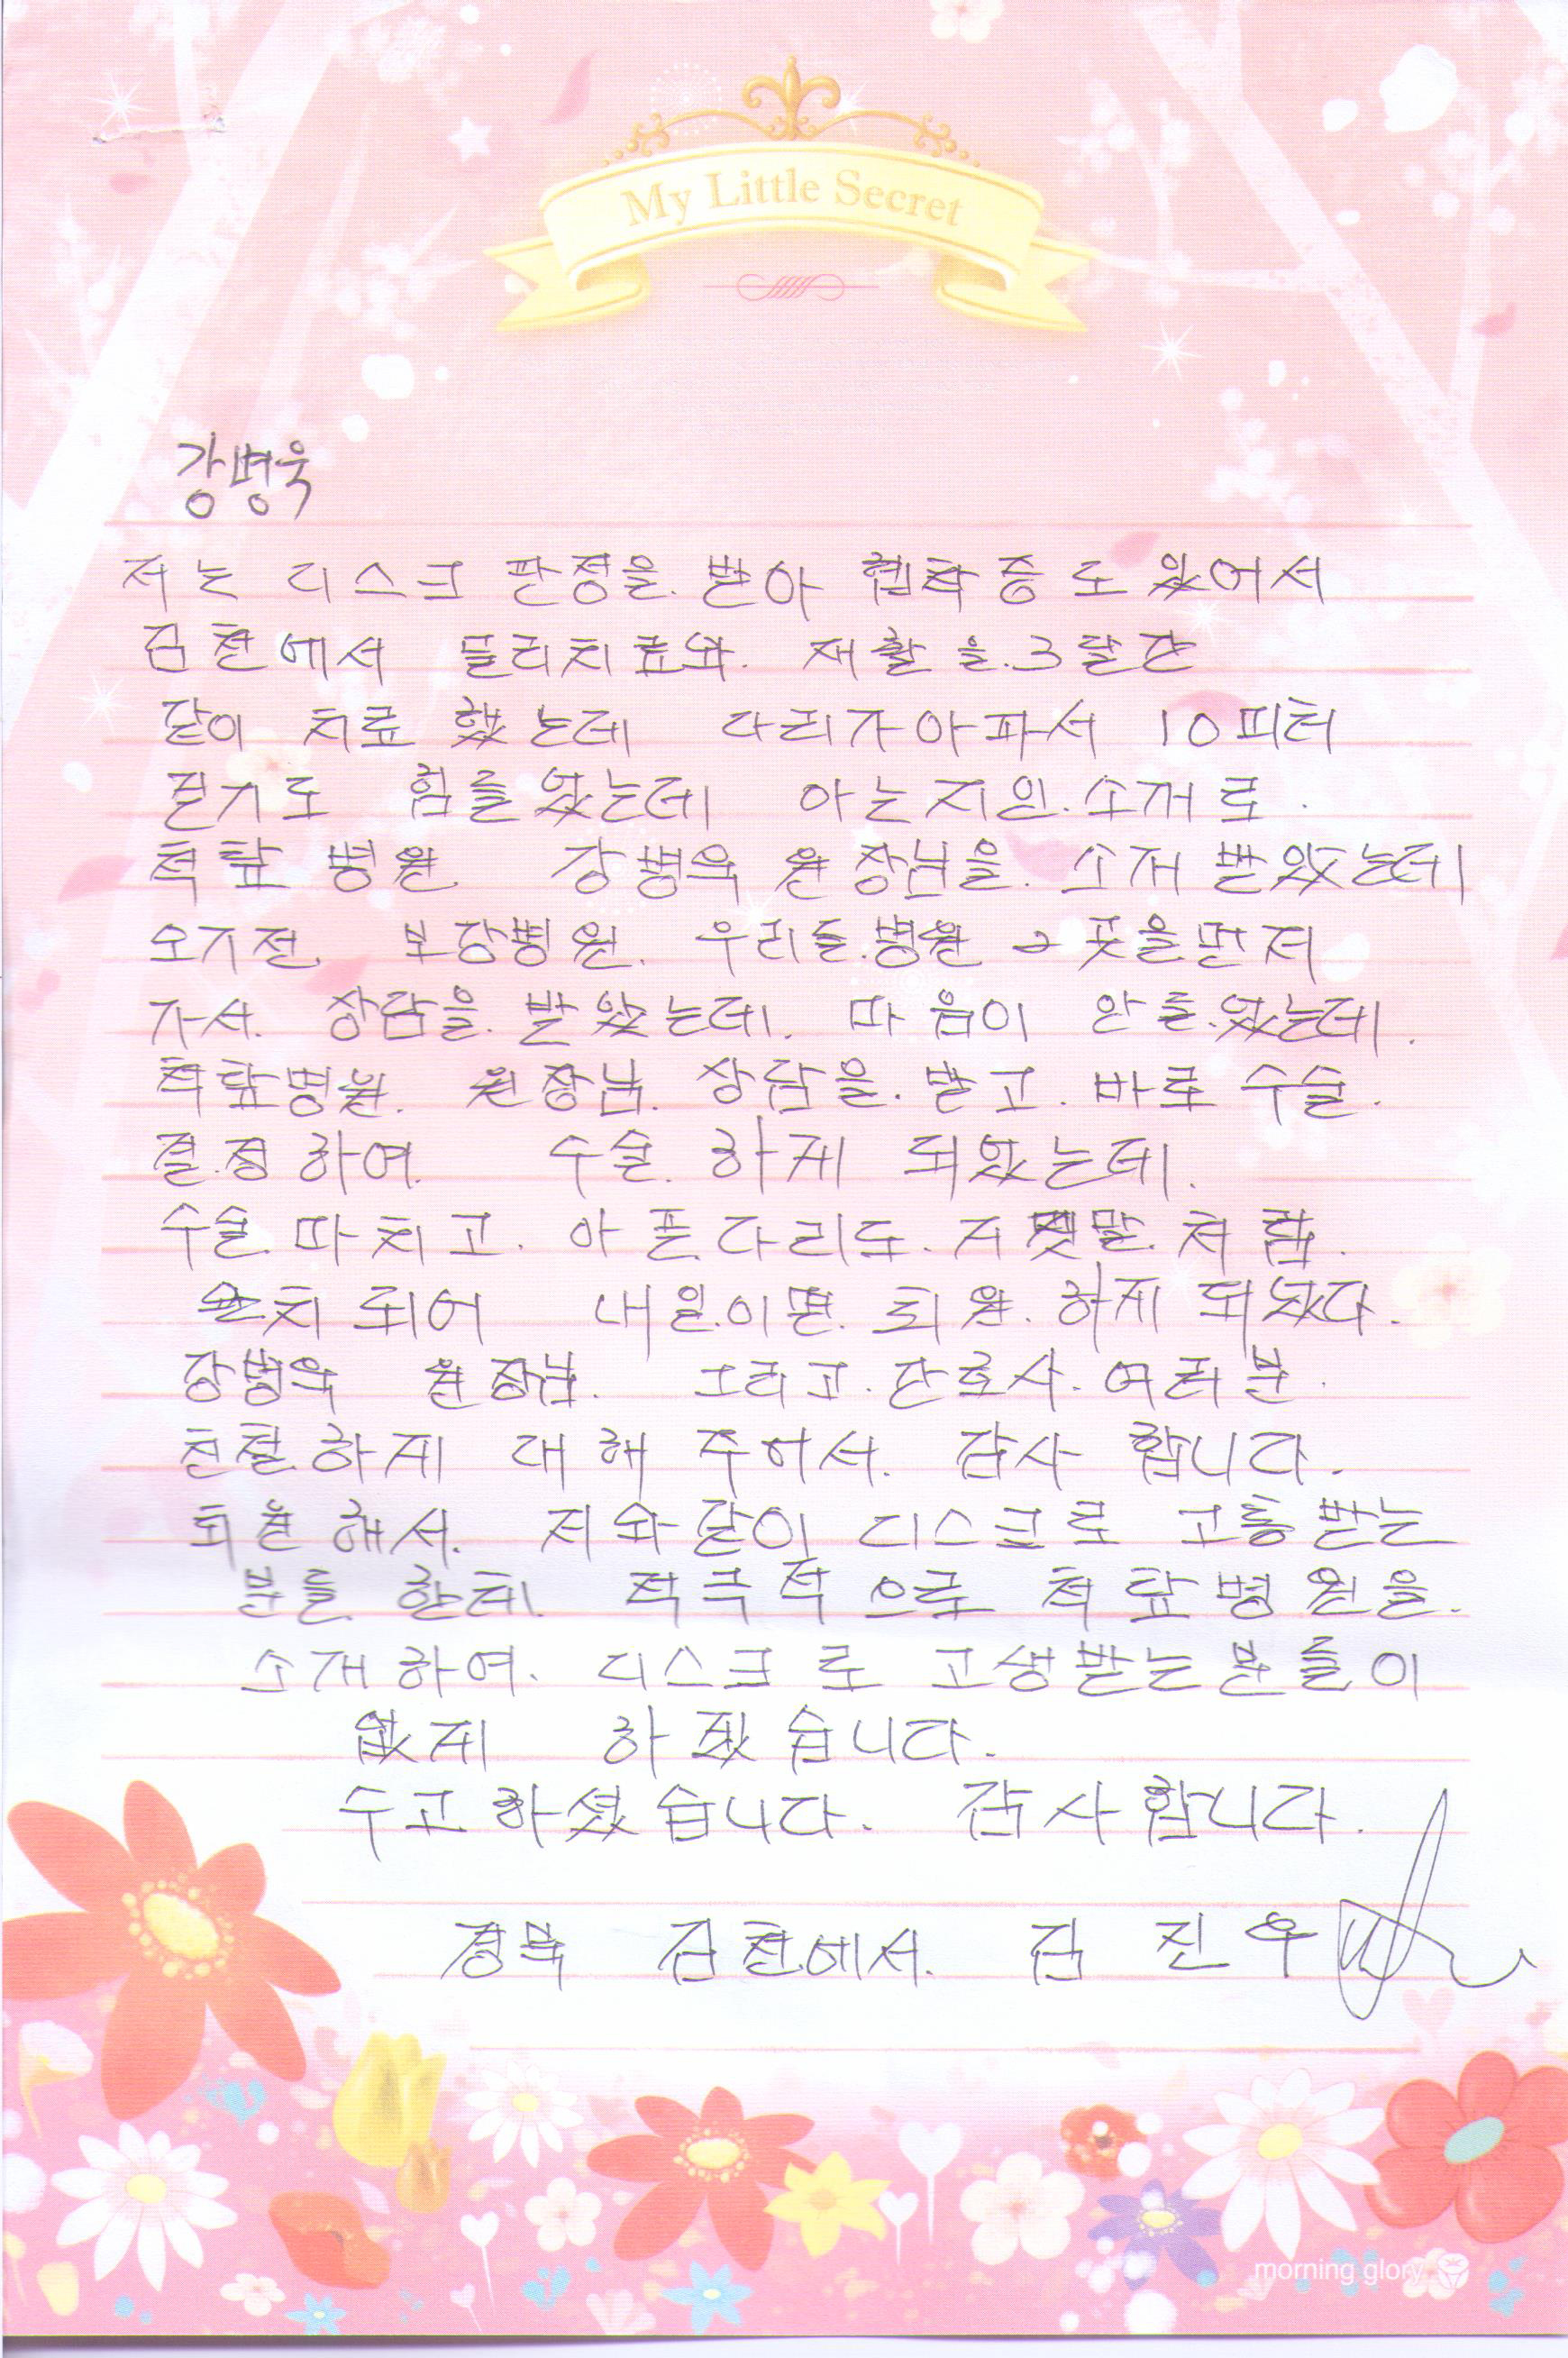 My Little Secret
강병욱
저는 디스크 판정을 받아 협착증도 있어서
김천에서 물리치료와. 재활을. 3달간
같이 치료 했는데 다리가아파서 10미터
걷기도 힘들었는데 아는지인. 소개로.
척탑병원 강병욱 원장님을. 소개 받았는데
오기전 보강병원. 우리들.병원 2곳을먼저
가서. 상담을. 받았는데. 마음이 안들.었는데.
척탑병원. 원장님. 상담을. 받고. 바로 수술.
결.정하여. 수술. 하게 되었는데.
수술. 마치고. 아픈.다리도. 거짓말.처럼.
완치되어 내일.이면. 퇴원. 하게 되었다.
강병욱 원장님. 그리고. 간호사. 여러분.
친절.하게 대해 주어서. 감사 합니다.
퇴원해서. 저와같이 디스크로 고통받는
분들 한테. 적극적으로 척탑병원을.
소개하여. 디스크로 고생받는분들이
없게 하겠습니다.
수고하셨습니다. 감사합니다.
경북 김천에서. 김진우
morning glory